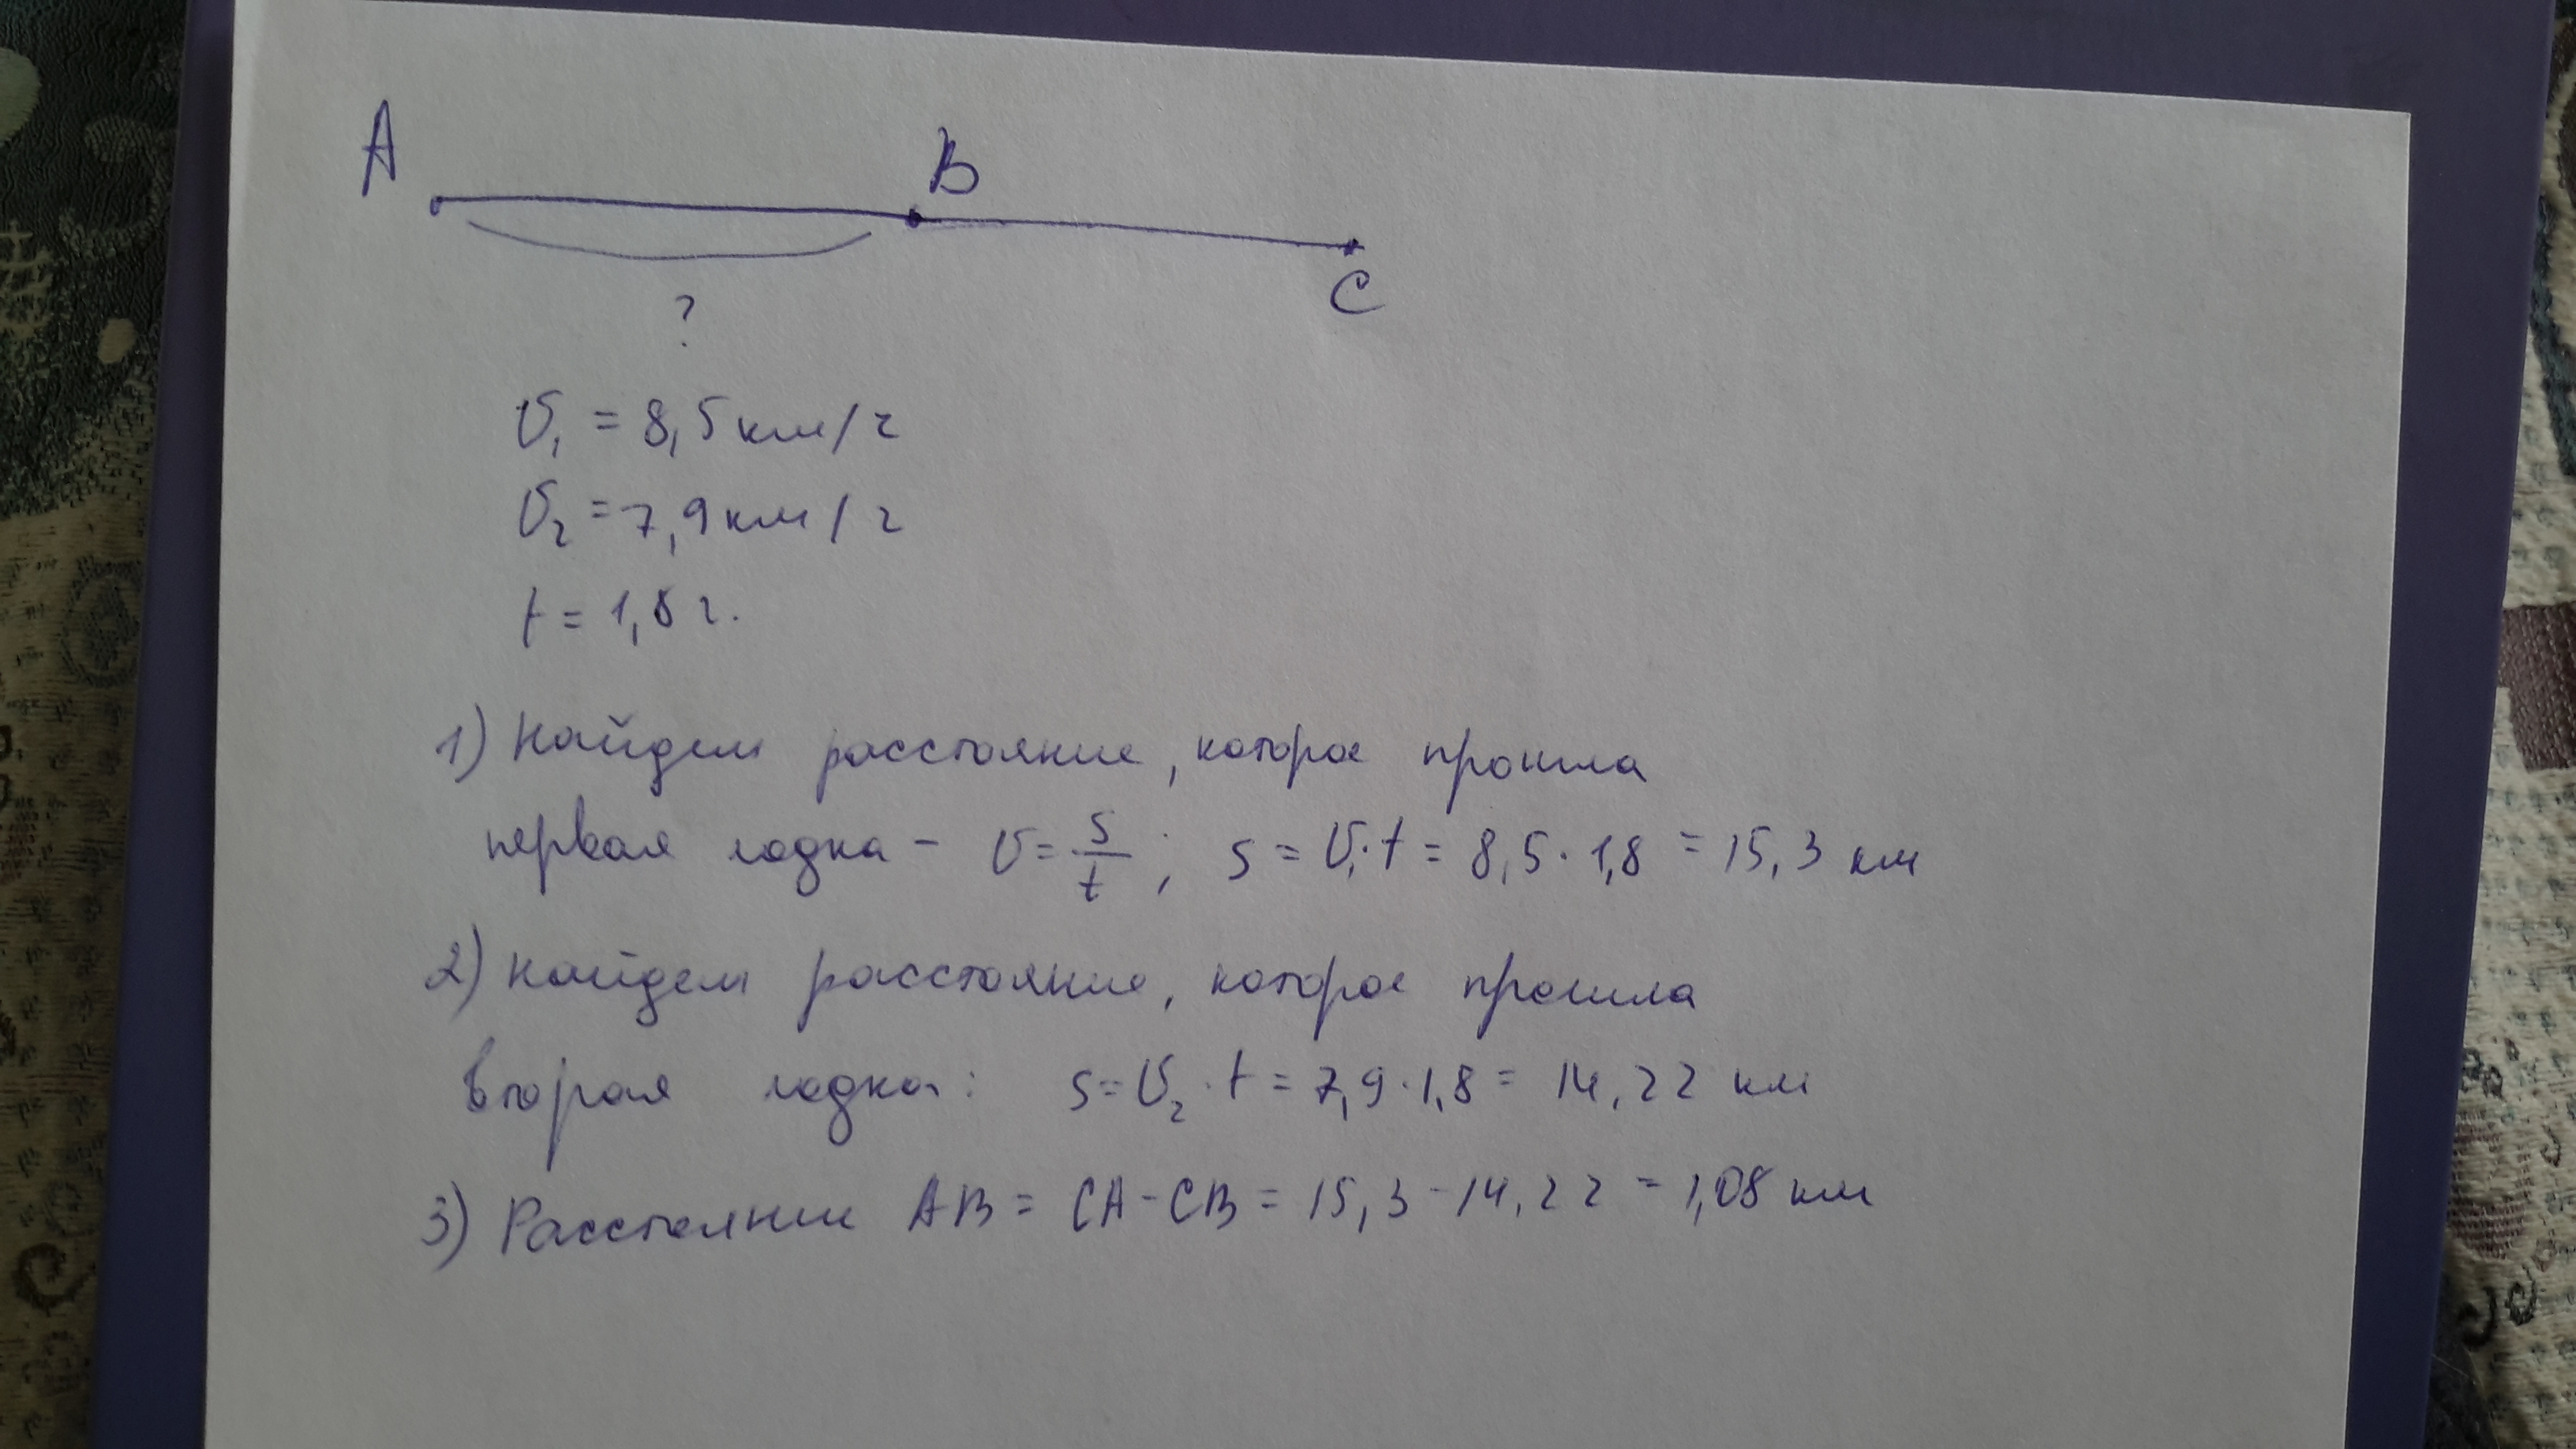 A
B
C
?
V₁ = 8,5 км/ч
V₂ = 7,9 км/ч
t = 1,8 ч.
1) Найдем расстояние, которое прошла
первая лодка - V = s/t ; s = V₁·t = 8,5 · 1,8 = 15,3 км
2) Найдем расстояние, которое прошла
вторая лодка: s = V₂ · t = 7,9 · 1,8 = 14,22 км
3) Расстояние AB = CA - CB = 15,3 - 14,22 = 1,08 км